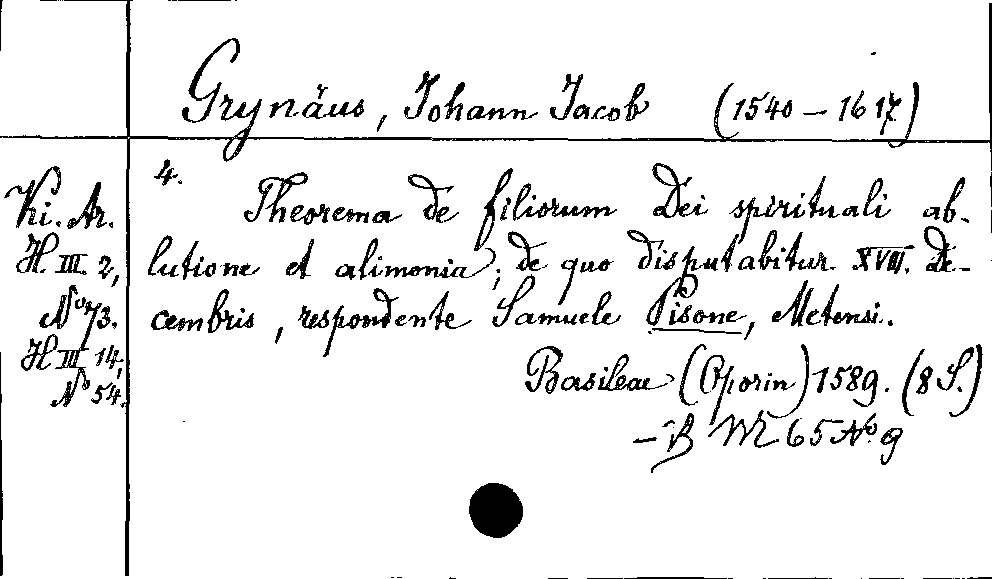 Grynäus, Johann Jacob (1540-1617)
4.
Ki. Ar.
H. III. 2,
No 73.
H III 14,
No 54.
Theorema de filiorum Dei spirituali ab-
lutione et alimonia; de quo disputabitur XVIII. De-
cembris, respondente Samuele Pisone, Metensi.
Basileae (Oporin) 1589. (8 S.)
- B 65 No 9